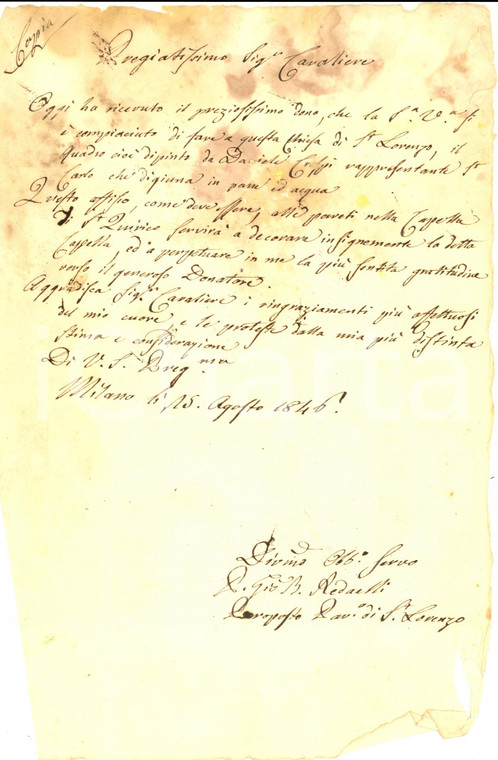 Copia
Pregiatissimo Sigr Cavaliere
Oggi ha ricevuto il preziosissimo dono, che la S.a V.a si
è compiaciuto di fare a questa Chiesa di Sn Lorenzo, il
Quadro cioè dipinto da Daniele Crespi rappresentante Sn
Carlo che digiuna in pane ed acqua
Questo affisso, come deve essere, alle pareti nella Cappella
di Sn Quirico servirà a decorare insignemente la detta
Cappella, ed a perpetuare in me la più sentita gratitudine
verso il generoso Donatore.
Aggradisca Sigr Cavaliere i ringraziamenti più affettuosi
del mio cuore e le proteste della mia più distinta
stima e considerazione
Di V. S. Preg.ma
Milano li 15. Agosto 1846.
Divmo Obbo Servo
P. Gio B. Redaelli
Preposto Par.o di Sn Lorenzo